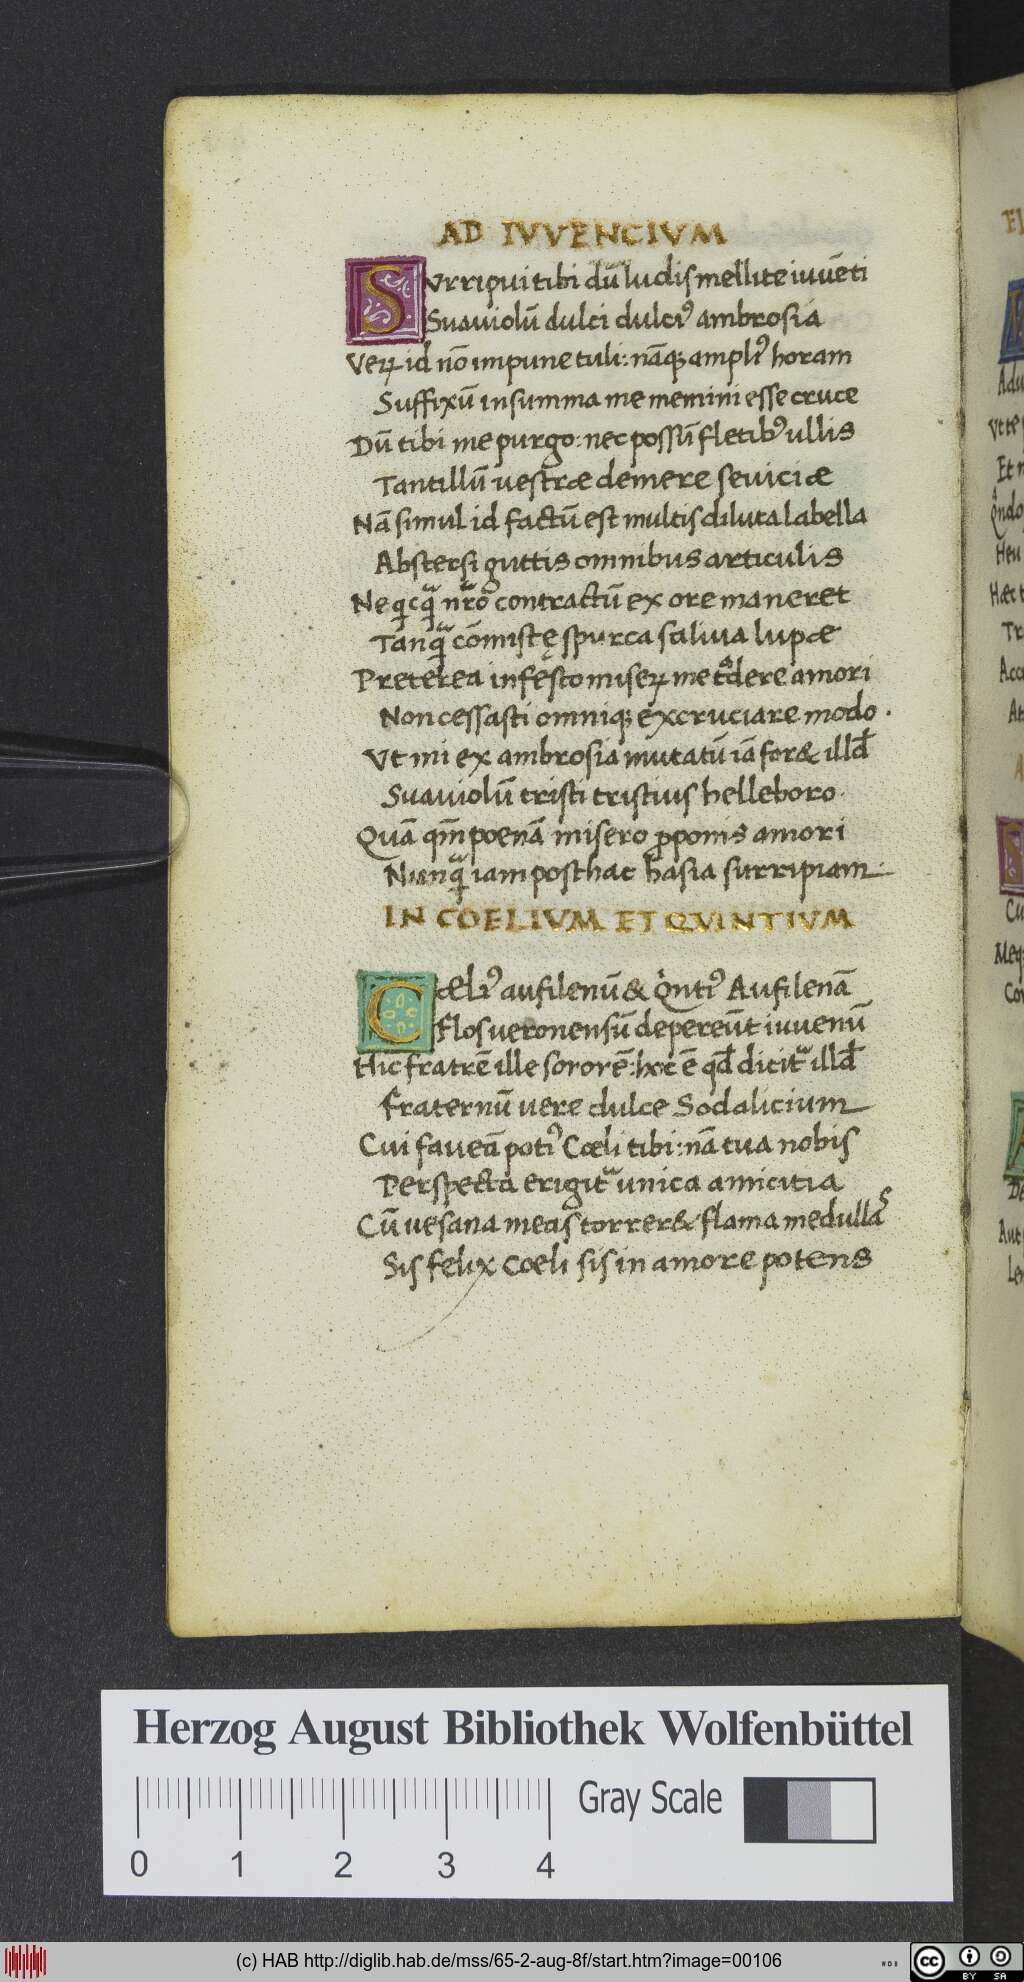 AD IVVENCIVM
SVrripui tibi dū ludis mellite iuuēti
Suauiolū dulci dulciꝰ ambrosia
Veꝝ id nō impune tuli: nāqꝫ ampliꝰ horam
Suffixū in summa me memini esse cruce
Dū tibi me purgo: nec possū fletibꝰ ullis
Tantillū uestræ demere seuiciæ
Nā simul id factū est multis diluta labella
Abstersi guttis omnibus articulis
Ne qͥcqᷓ nr̄o contractū ex ore maneret
Tanqᷓ cōmistę spurca saliua lupæ
Preterea infęsto miseꝝ me tᷓdere amori
Non cessasti omniqꝫ excruciare modo ·
Vt mi ex ambrosia mutatū iā for& illđ
Suauiolū tristi tristius helleboro ·
Quā qm̄ poenā misero ꝓponis amori
Nunqᷓ iam posthac basia surripiam ·
IN COELIVM ET QVINTIVM
Cæliꝰ aufilenū & Qͥntiꝰ Aufilenā
flos ueronensū depereūt iuuenū
Hic fratrē ille sororē: hoc ē qđ dicitᷣ illđ
fraternū uere dulce Sodalicium
Cui faueā potiꝰ Cœli tibi: nā tua nobis
Perspecta erigitᷣ unica amicitia
Cū uesana meas torrer& flama medullas
Sis felix Coeli sis in amore potens
Herzog August Bibliothek Wolfenbüttel
Gray Scale
0 1 2 3 4
(c) HAB http://diglib.hab.de/mss/65-2-aug-8f/start.htm?image=00106
cc BY SA